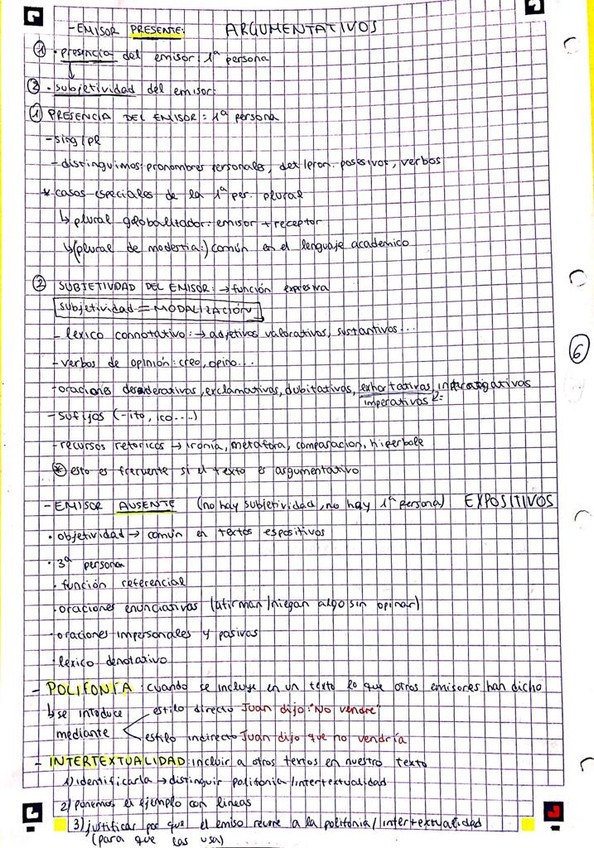 -EMISOR PRESENTE: ARGUMENTATIVOS
① · presencia del emisor: 1ª persona
② · subjetividad del emisor:
① PRESENCIA DEL EMISOR: 1ª persona
-sing/pl
-distinguimos: pronombres personales, det/pron. posesivos, verbos
* casos especiales de la 1ª per. plural
↳ plural globalitador: emisor + receptor
↳ (plural de modestia:) común en el lenguaje academico
② SUBJETIVIDAD DEL EMISOR: → función expresiva
subjetividad = MODALIZACIÓN
- lexico connotativo: → adjetivos valorativos, sustantivos...
-verbos de opinión: creo, opino...
-oraciones desiderativas, exclamativas, dubitativas, exhortativas, interrogativas
imperativas
-sufijos (-ito, ico....)
-recursos retoricos → ironía, metafora, comparacion, hiperbole
* esto es frecuente si el texto es argumentativo
-EMISOR AUSENTE (no hay subjetividad, no hay 1ª persona) EXPOSITIVOS
· objetividad → común en textos espositivos
· 3ª persona
· función referencial
· oraciones enunciativas (afirman/niegan algo sin opinar)
· oraciones impersonales y pasivas
· lexico denotativo
- POLIFONÍA: cuando se incluye en un texto lo que otros emisores han dicho
↳ se intoduce estilo directo Juan dijo: "No vendre"
mediante estilo indirecto Juan dijo que no vendría
- INTERTEXTUALIDAD: incluir a otros textos en nuestro texto
1) identificarla → distinguir polifonia/intertextualidad
2) ponemos el ejemplo con lineas
3) justificar por que el emiso recurre a la polifonía/intertextualidad
(para que las usa)
⑥